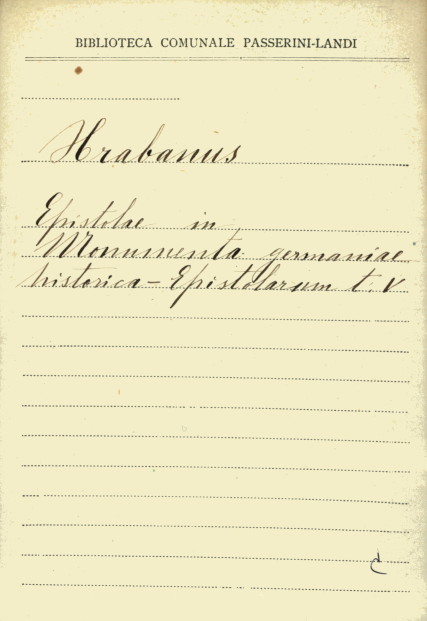 BIBLIOTECA COMUNALE PASSERINI-LANDI
Hrabanus
Epistolae in
Monumenta germaniae
historica - Epistolarum t. V